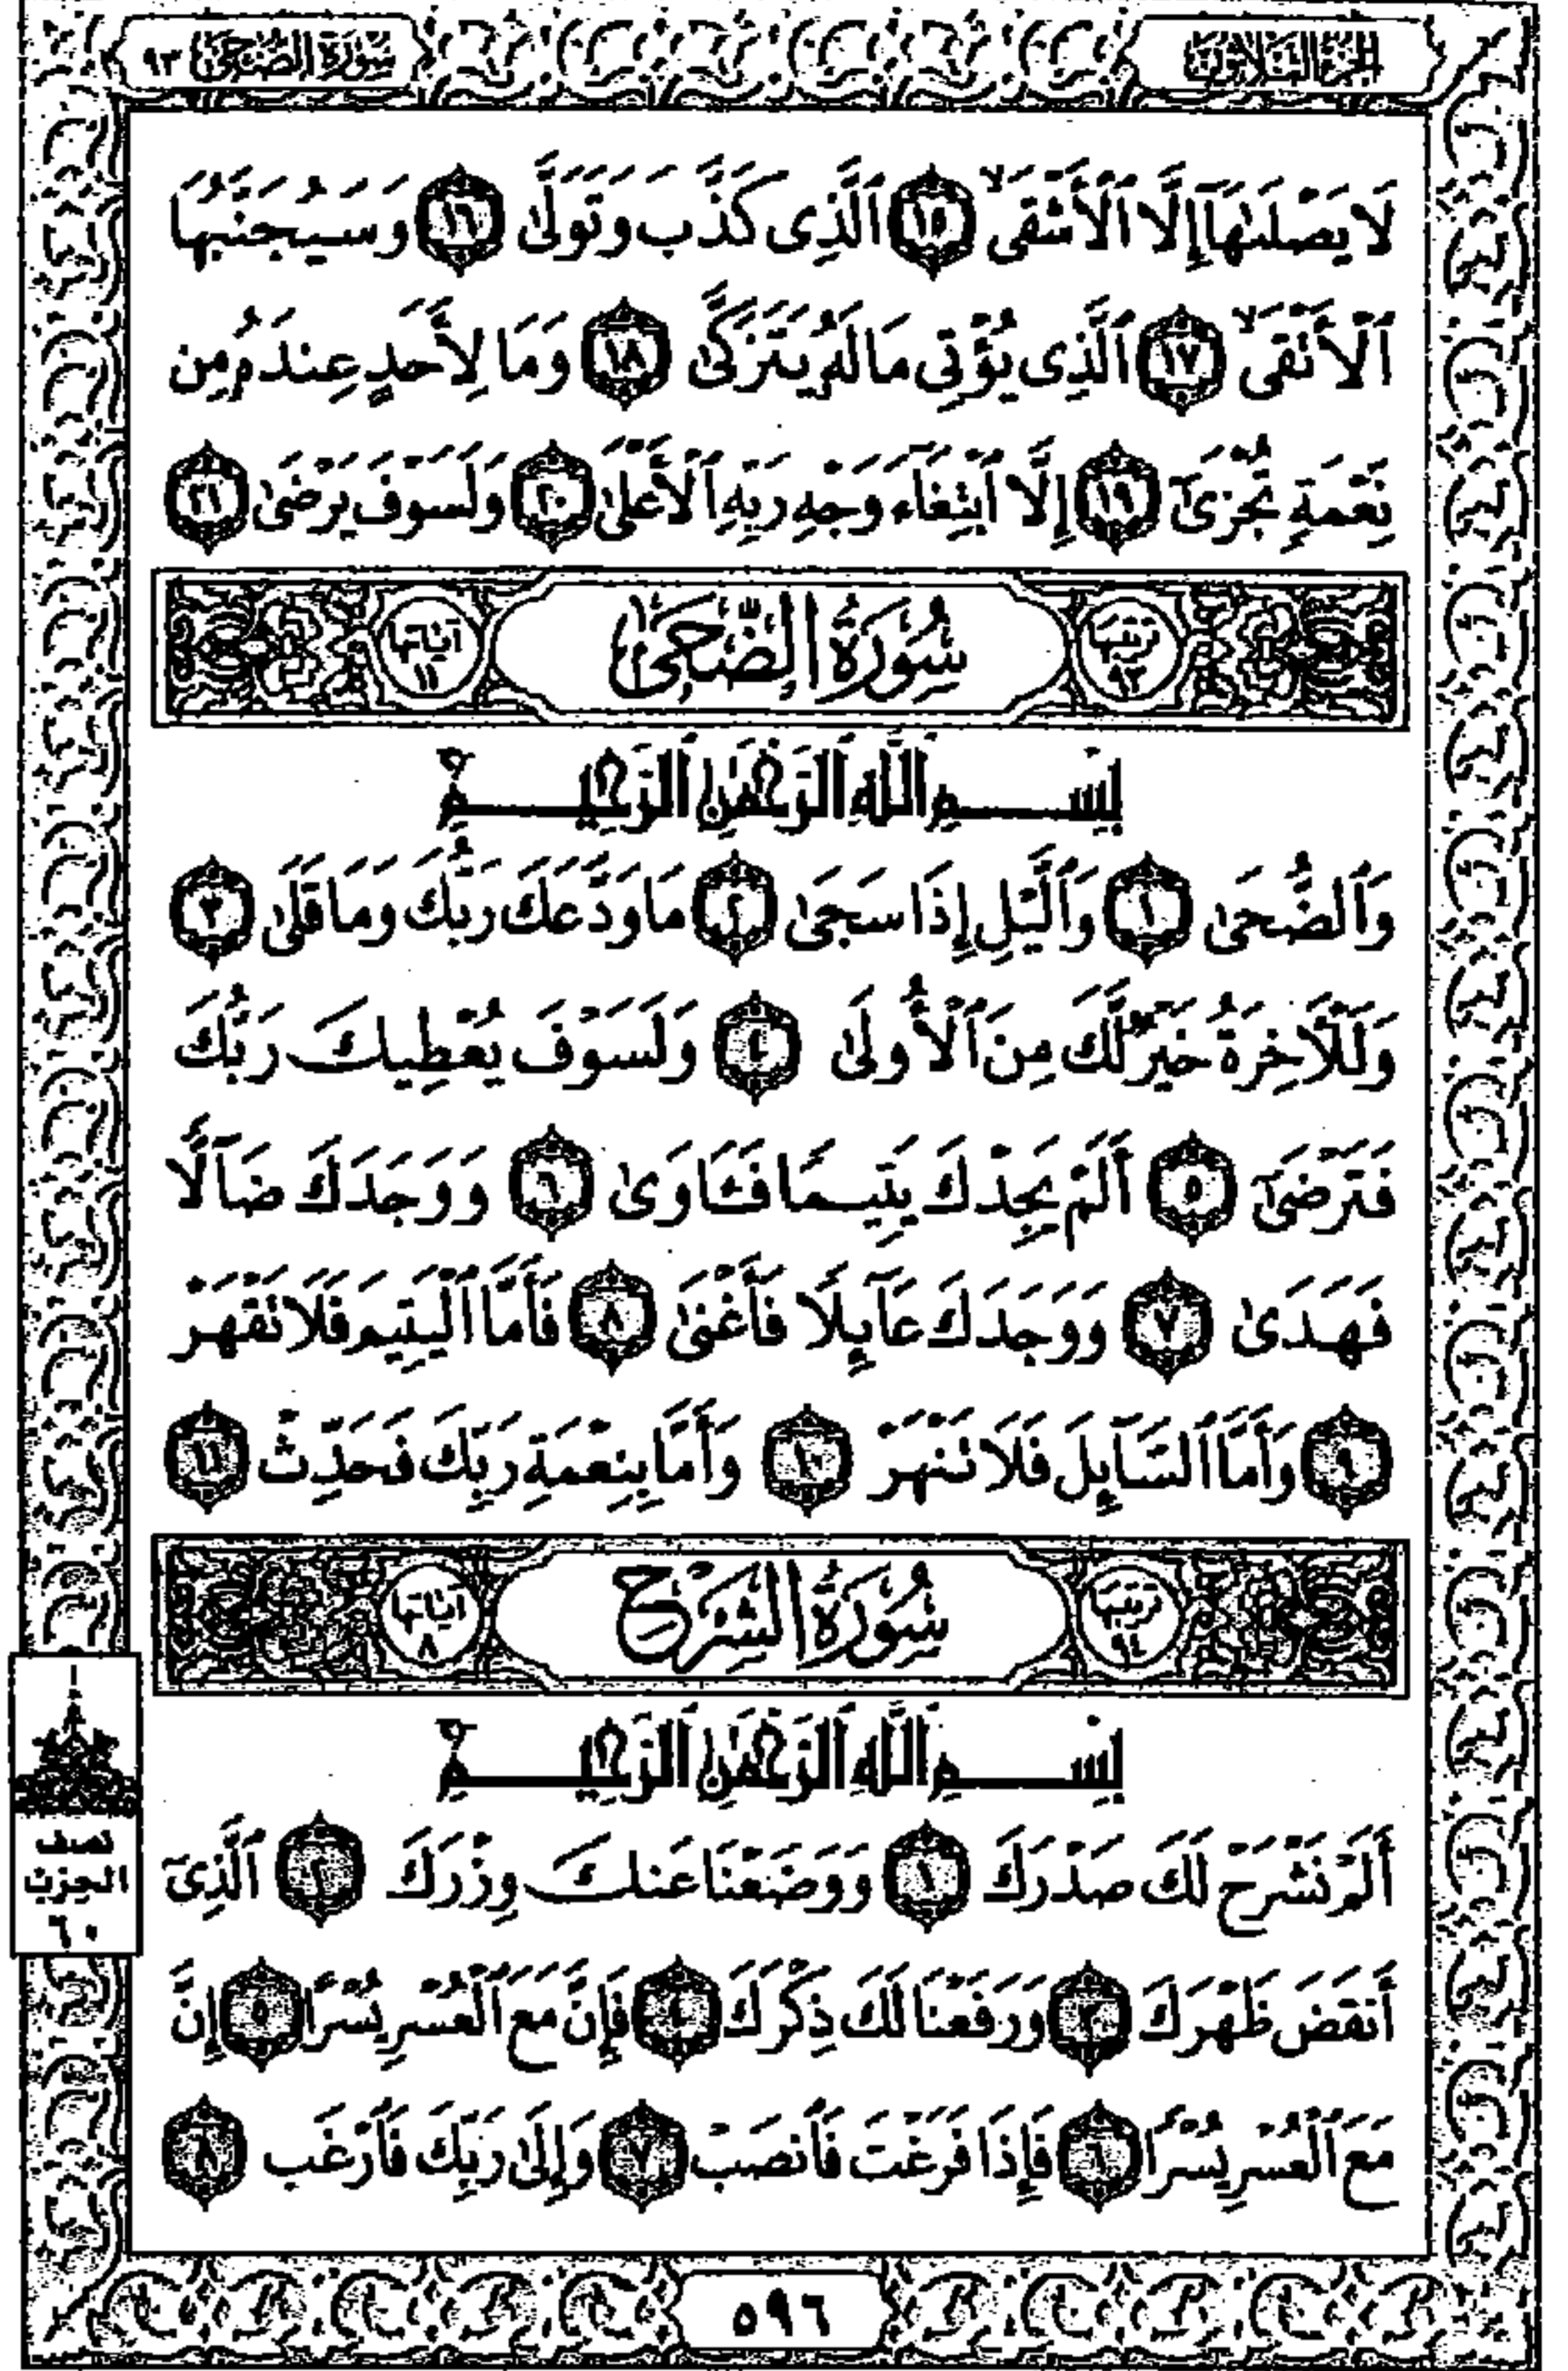 الجزء الثلاثون
سورة الضحى ٩٣
لَا يَصْلَىٰهَآ إِلَّا ٱلْأَشْقَى ١٥ ٱلَّذِى كَذَّبَ وَتَوَلَّىٰ ١٦ وَسَيُجَنَّبُهَا
ٱلْأَتْقَى ١٧ ٱلَّذِى يُؤْتِى مَالَهُۥ يَتَزَكَّىٰ ١٨ وَمَا لِأَحَدٍ عِندَهُۥ مِن
نِّعْمَةٍ تُجْزَىٰٓ ١٩ إِلَّا ٱبْتِغَآءَ وَجْهِ رَبِّهِ ٱلْأَعْلَىٰ ٢٠ وَلَسَوْفَ يَرْضَىٰ ٢١
ترتيبها ٩٣ سُورَةُ الضُّحَىٰ آياتها ١١
بِسْمِ ٱللَّهِ ٱلرَّحْمَٰنِ ٱلرَّحِيمِ
وَٱلضُّحَىٰ ١ وَٱلَّيْلِ إِذَا سَجَىٰ ٢ مَا وَدَّعَكَ رَبُّكَ وَمَا قَلَىٰ ٣
وَلَلْأَخِرَةُ خَيْرٌ لَّكَ مِنَ ٱلْأُولَىٰ ٤ وَلَسَوْفَ يُعْطِيكَ رَبُّكَ
فَتَرْضَىٰٓ ٥ أَلَمْ يَجِدْكَ يَتِيمًا فَـَٔاوَىٰ ٦ وَوَجَدَكَ ضَآلًّا
فَهَدَىٰ ٧ وَوَجَدَكَ عَآئِلًا فَأَغْنَىٰ ٨ فَأَمَّا ٱلْيَتِيمَ فَلَا تَقْهَرْ
٩ وَأَمَّا ٱلسَّآئِلَ فَلَا تَنْهَرْ ١٠ وَأَمَّا بِنِعْمَةِ رَبِّكَ فَحَدِّثْ ١١
ترتيبها ٩٤ سُورَةُ الشَّرْحِ آياتها ٨
بِسْمِ ٱللَّهِ ٱلرَّحْمَٰنِ ٱلرَّحِيمِ
أَلَمْ نَشْرَحْ لَكَ صَدْرَكَ ١ وَوَضَعْنَا عَنكَ وِزْرَكَ ٢ ٱلَّذِىٓ
أَنقَضَ ظَهْرَكَ ٣ وَرَفَعْنَا لَكَ ذِكْرَكَ ٤ فَإِنَّ مَعَ ٱلْعُسْرِ يُسْرًا ٥ إِنَّ
مَعَ ٱلْعُسْرِ يُسْرًا ٦ فَإِذَا فَرَغْتَ فَٱنصَبْ ٧ وَإِلَىٰ رَبِّكَ فَٱرْغَب ٨
نصف
الحزب
٦٠
٥٩٦